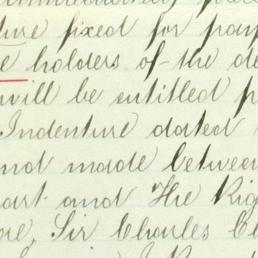 ture fixed for pay
e holders of the de
will be entitled p
Indenture dated
and made between
part and The Rig
Sir Charles